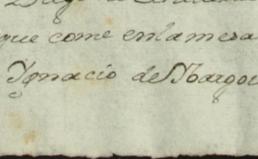 que come enlamesa
Ygnacio de Ibargoi